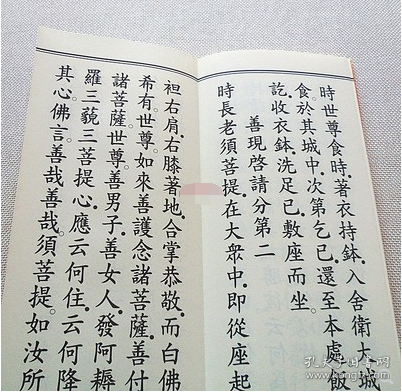 時世尊食時。著衣持鉢。入舍衛大城
食於其城中。次第乞已。還至本處。飯
訖。收衣鉢。洗足已。敷座而坐。
善現啓請分第二
時長老須菩提。在大衆中。即從座起
袒右肩。右膝著地。合掌恭敬。而白佛
希有。世尊。如來善護念諸菩薩。善付
諸菩薩。世尊。善男子。善女人。發阿耨
羅三藐三菩提心。應云何住。云何降
其心。佛言。善哉善哉。須菩提。如汝所
孔夫子旧书网